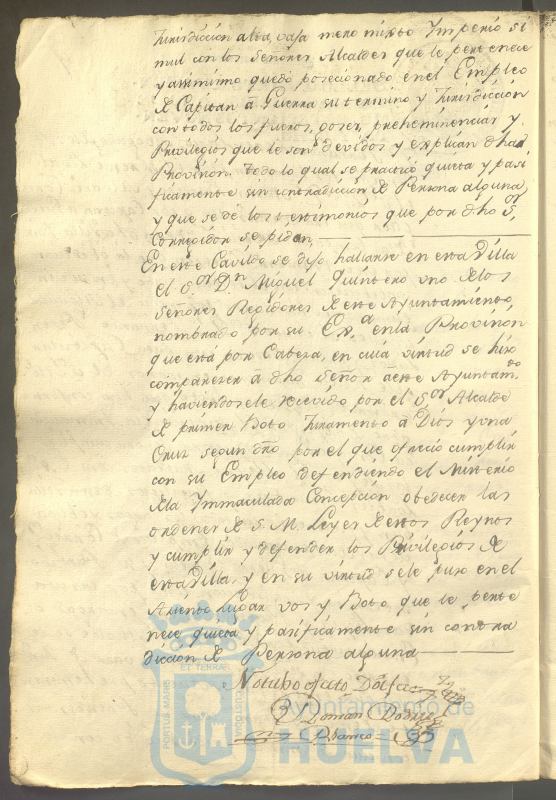 Jurisdiccion alta, vaja mero mixto Imperio si
mul con los Señores Alcaldes que le pertenece
y assimismo quedó posecionado en el Empleo
de Capitan â Guerra su termino y Jurisdiccion
con todos los fueros, goses, preheminencias y
Privilegios que le son devidos y explican dha
Provision. Todo lo qual se practicò quieta y pasi
ficamente sin contradiccion de Persona alguna
y que se dé los testimonios que por dho Sor
Corregidor se pidan
En este Cavildo se dijo hallarse en esta Villa
el Sor Dn Miguel Quintero uno de los
Señores Regidores de este Ayuntamiento,
nombrado por su Exa en la Provision
que está por Cabeza, en cuia virtud se hiso
comparecer â dho Señor â este Ayuntamto
y haviendosele recevido por el Sor Alcalde
de primer Boto Juramento â Dios y una
Cruz segun dro por el que ofreciò cumplir
con su Empleo defendiendo el Misterio
de la Immaculada Concepcion obedecer las
ordenes de S. M. Leyes de estos Reynos
y cumplir y defender los Privilegios de
esta Villa, y en su virtud se le puso en el
Aziento Lugar vos y Boto que le perte
nece quieta y pasificamente sin contra
diccion de Persona alguna
No tubo efecto
Roman
Blanco
PORTUS MARIS
ET TERRAE
CUSTODIA
Ayuntamiento de
HUELVA